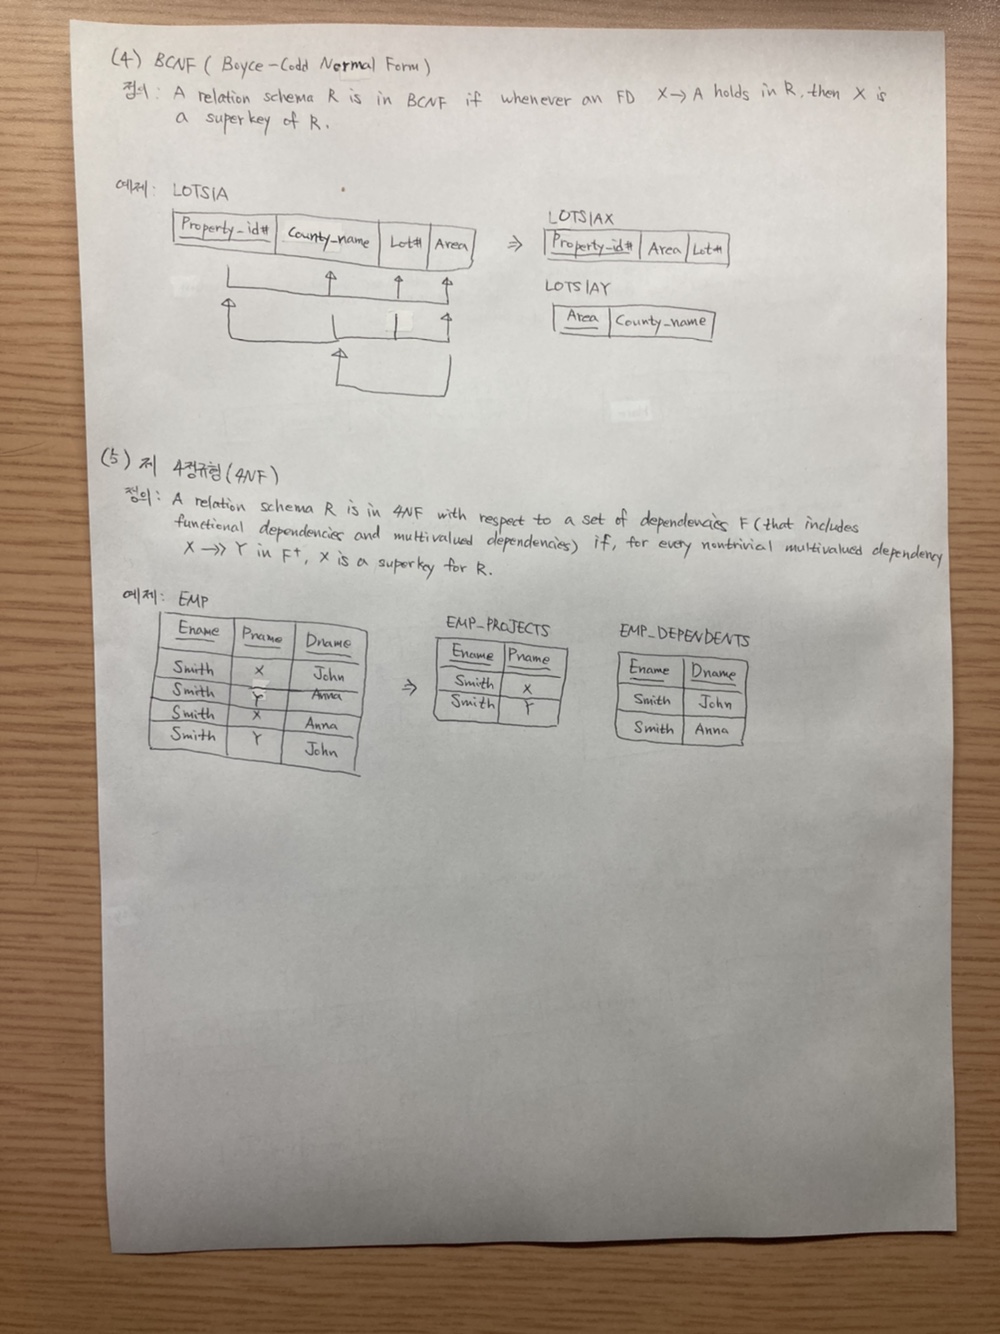 (4) BCNF ( Boyce-Codd Normal Form )
정의 : A relation schema R is in BCNF if whenever an FD X→A holds in R, then X is
a superkey of R.
예제 : LOTS1A
Property_id# County_name Lot# Area
⇒
LOTS1AX
Property_id# Area Lot#
LOTS1AY
Area County_name
(5) 제 4정규형 (4NF)
정의 : A relation schema R is in 4NF with respect to a set of dependencies F (that includes
functional dependencies and multivalued dependencies) if, for every nontrivial multivalued dependency
X →> Y in F+, X is a superkey for R.
예제 : EMP
Ename Pname Dname
Smith X John
Smith Y Anna
Smith X Anna
Smith Y John
⇒
EMP_PROJECTS
Ename Pname
Smith X
Smith Y
EMP_DEPENDENTS
Ename Dname
Smith John
Smith Anna